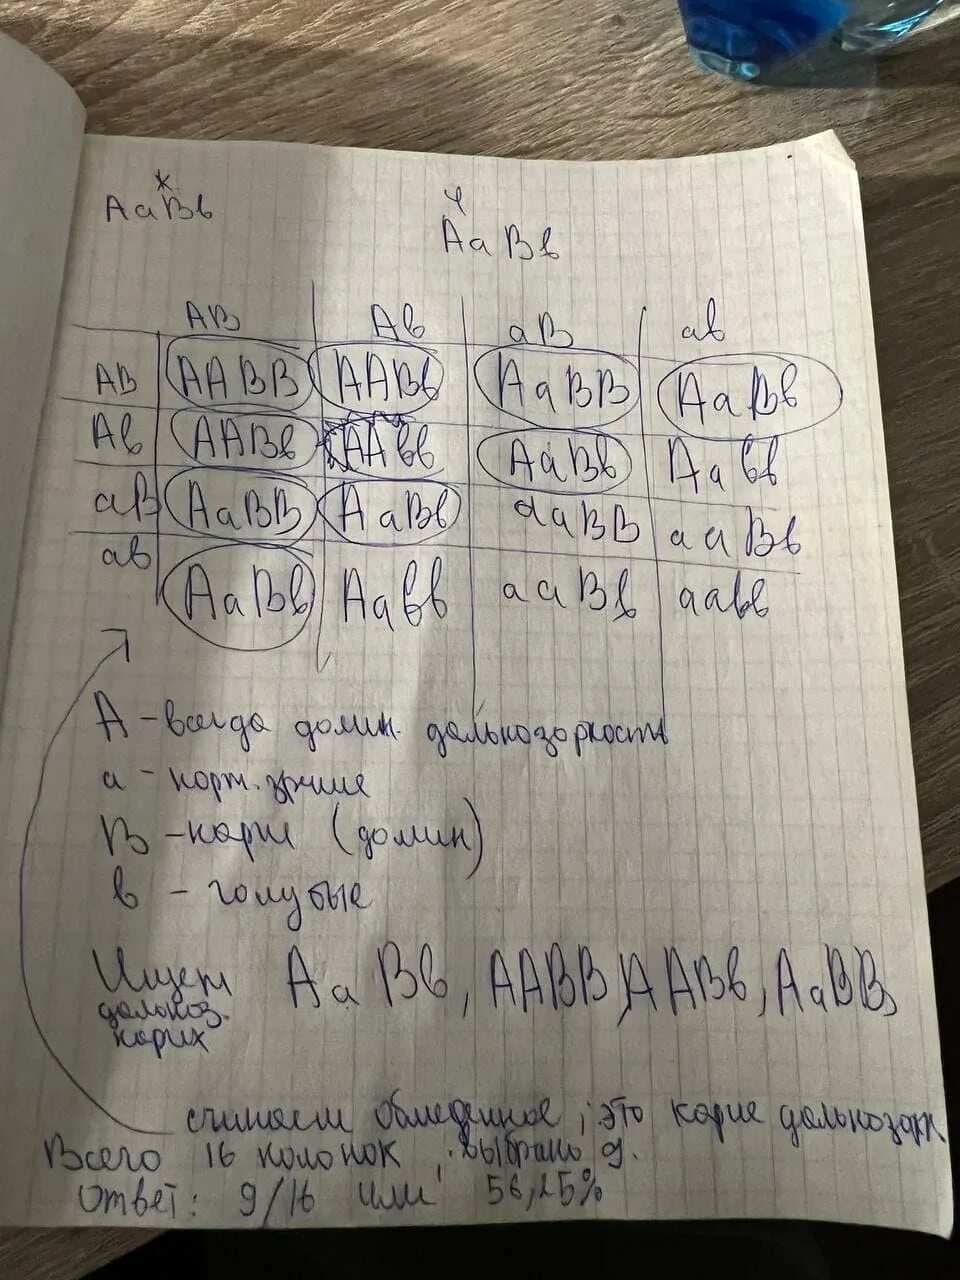 ж
АаВв
ч
АаВв
АВ Ав аВ ав
АВ ААВВ ААВв АаВВ АаВв
Ав ААВв ААвв АаВв Аавв
аВ АаВВ АаВв ааВВ ааВв
ав АаВв Аавв ааВв аавв
А - всегда домин. дальнозоркость
а - норм. зрение
В - карие (домин)
в - голубые
Ищем АаВв, ААВВ, ААВв, АаВВ,
дальноз.
карих
считаем обведенное, это карие дальнозорк
Всего 16 колонок, выбрано 9.
Ответ: 9/16 или 56,25%